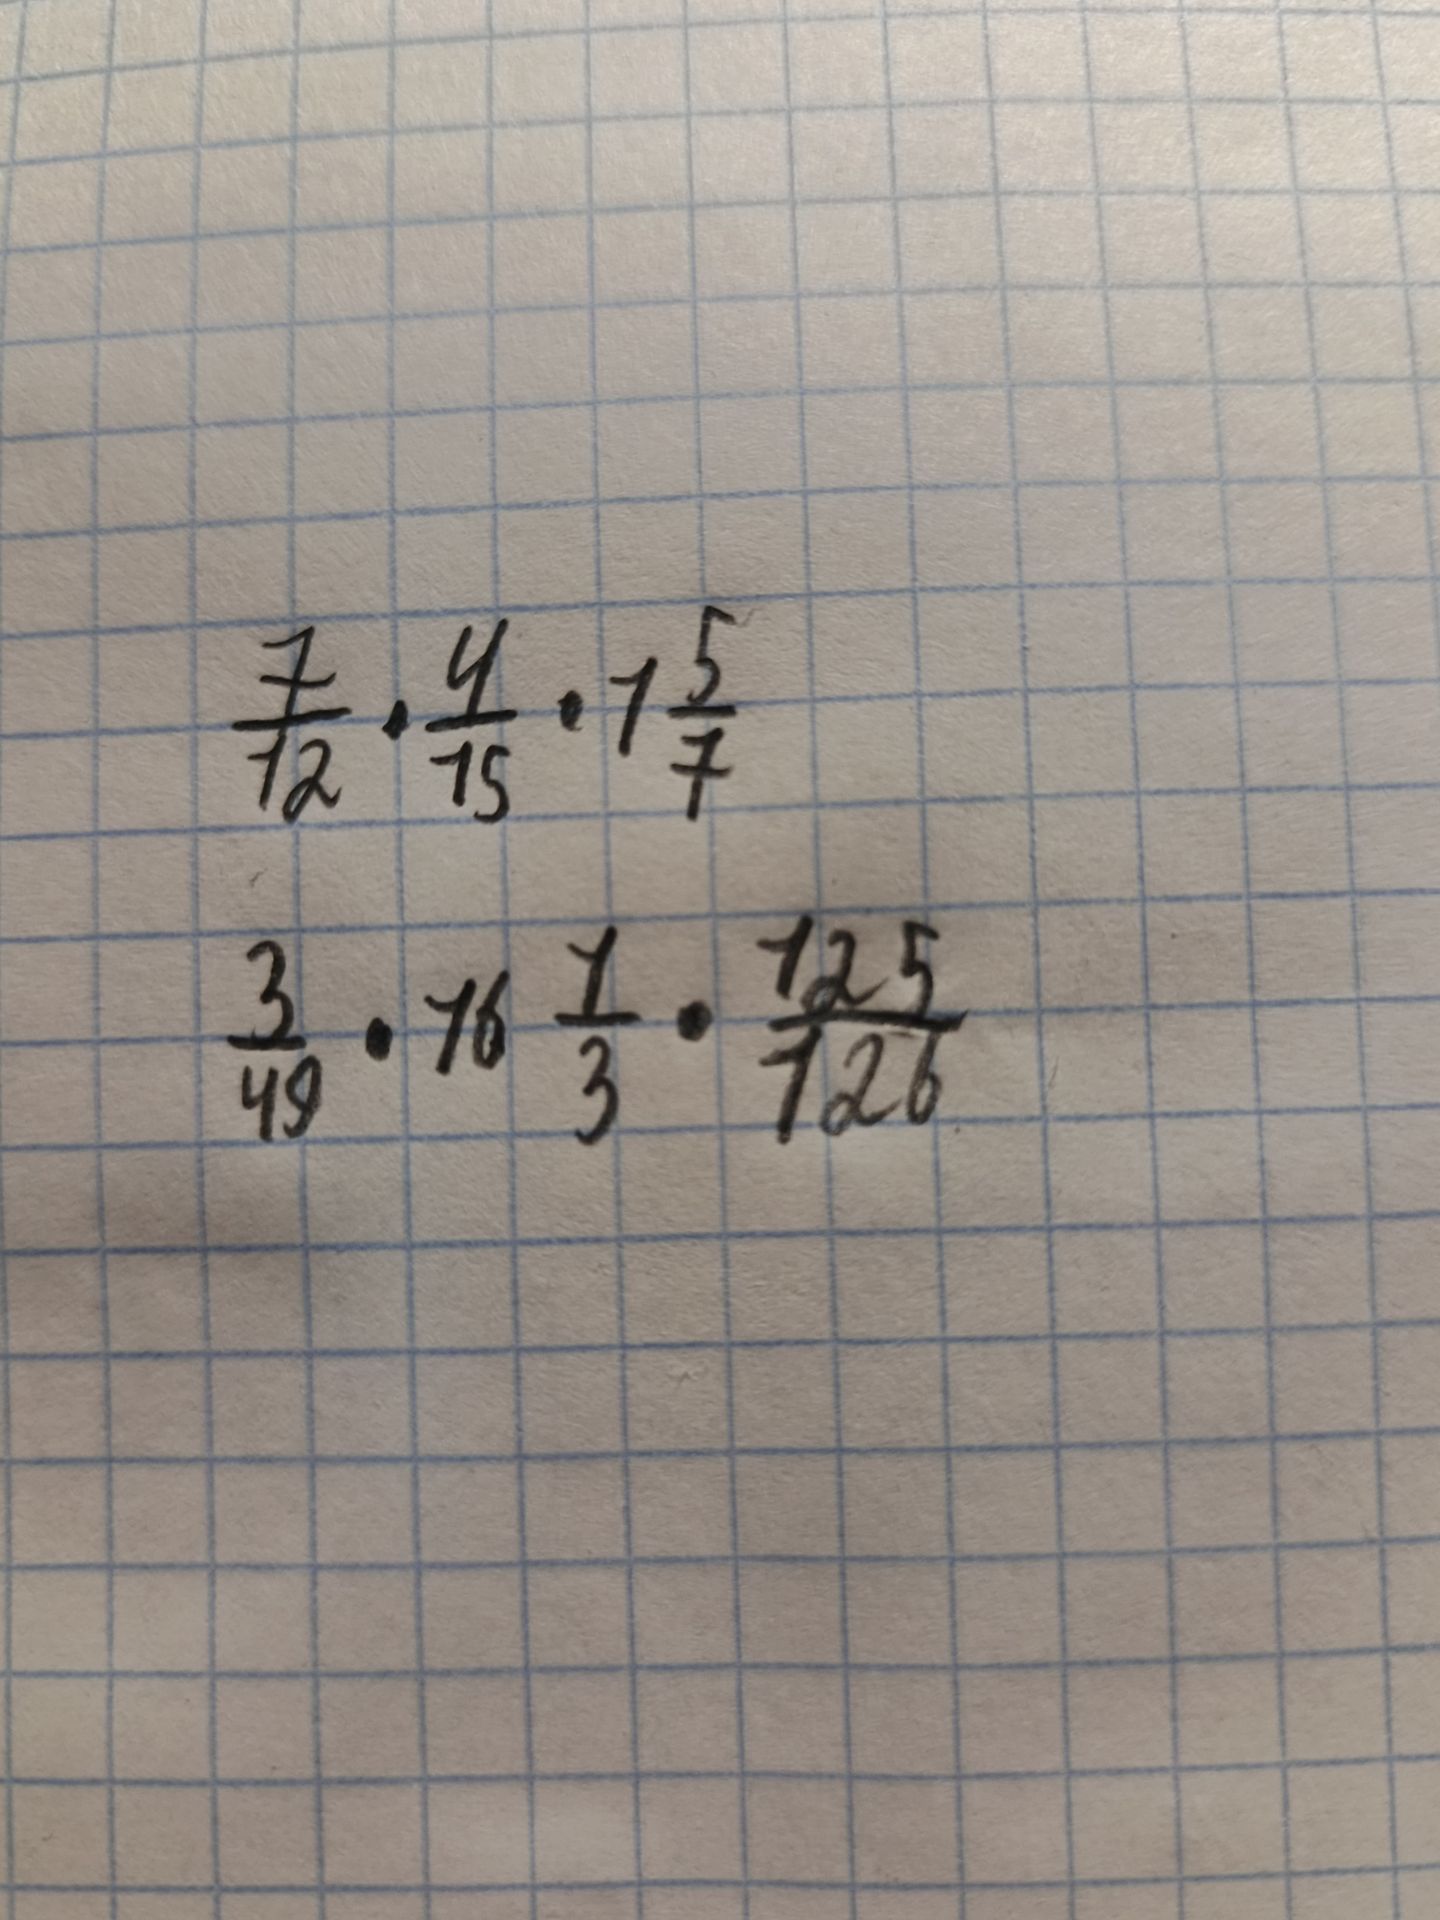 7/12 · 4/15 · 1 5/7
3/49 · 16 1/3 · 125/126